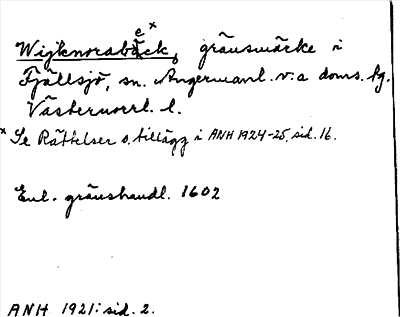 Wigknorsbäck, gränsmärke i
Fjällsjö, sn. Ångermanl. v:a doms. fg.
Västernorrl. l.
* Se Rättelser o. tillägg i ANH 1924-25, sid. 16.
Enl. gränshandl. 1602
ANH 1921: sid. 2.